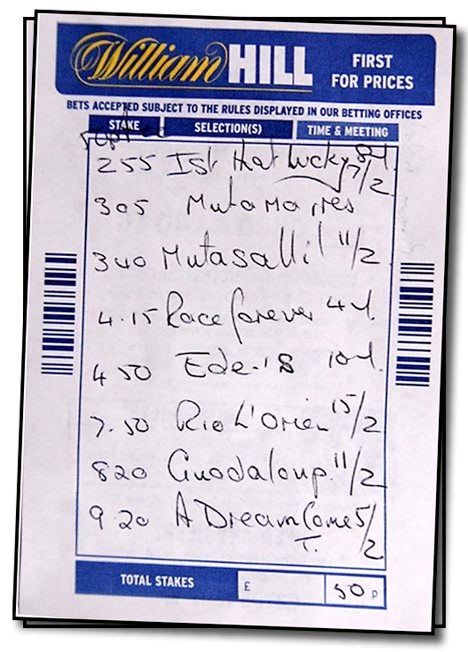 William HILL
FIRST
FOR PRICES
BETS ACCEPTED SUBJECT TO THE RULES DISPLAYED IN OUR BETTING OFFICES
STAKE SELECTION(S) TIME & MEETING
255 Ist Hat Lucky 7/2
305 Mutamarres
340 Mutasallil 11/2
4.15 Race forever 4-1.
450 Ede-'s 10-1.
7.50 Rio L'Orien 15/2
820 Guadaloup. 11/2
9.20 A Dream Come 5/2
T.
TOTAL STAKES £ 50 p